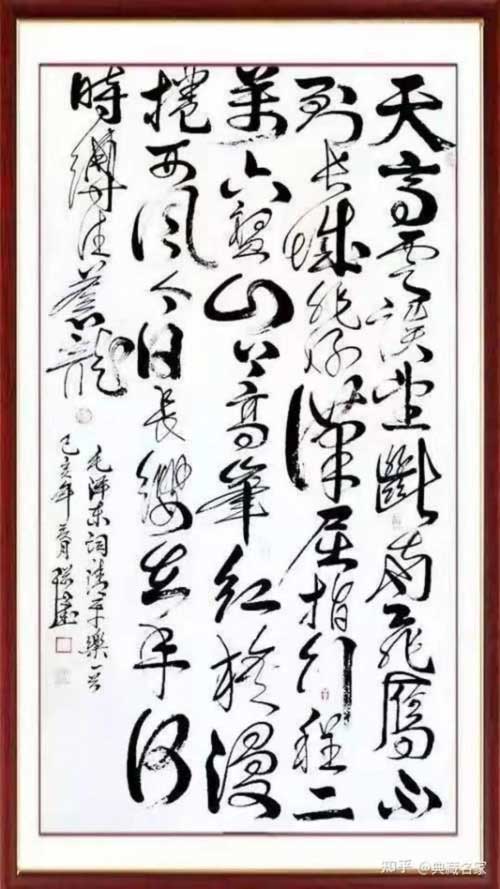 天高雲淡望斷南飛雁不
到长城非好漢屈指行程二
萬六盤山上高峯紅旗漫
捲西风今日长纓在手何
時縛住蒼龍
毛泽东词清平樂一首
己亥年
知乎 @典藏名家